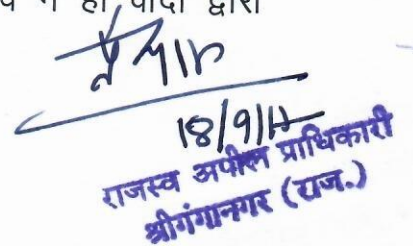 न ही वादी द्वारा
18/9/1
राजस्व अपील प्राधिकारी
श्रीगंगानगर (राज.)